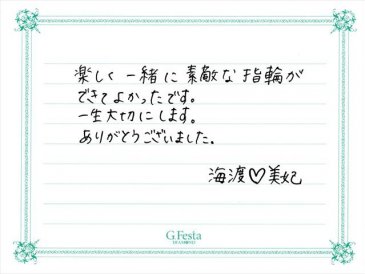 楽しく一緒に素敵な指輪が
できてよかったです。
一生大切にします。
ありがとうございました。
海渡♡美妃
G.Festa
DIAMOND